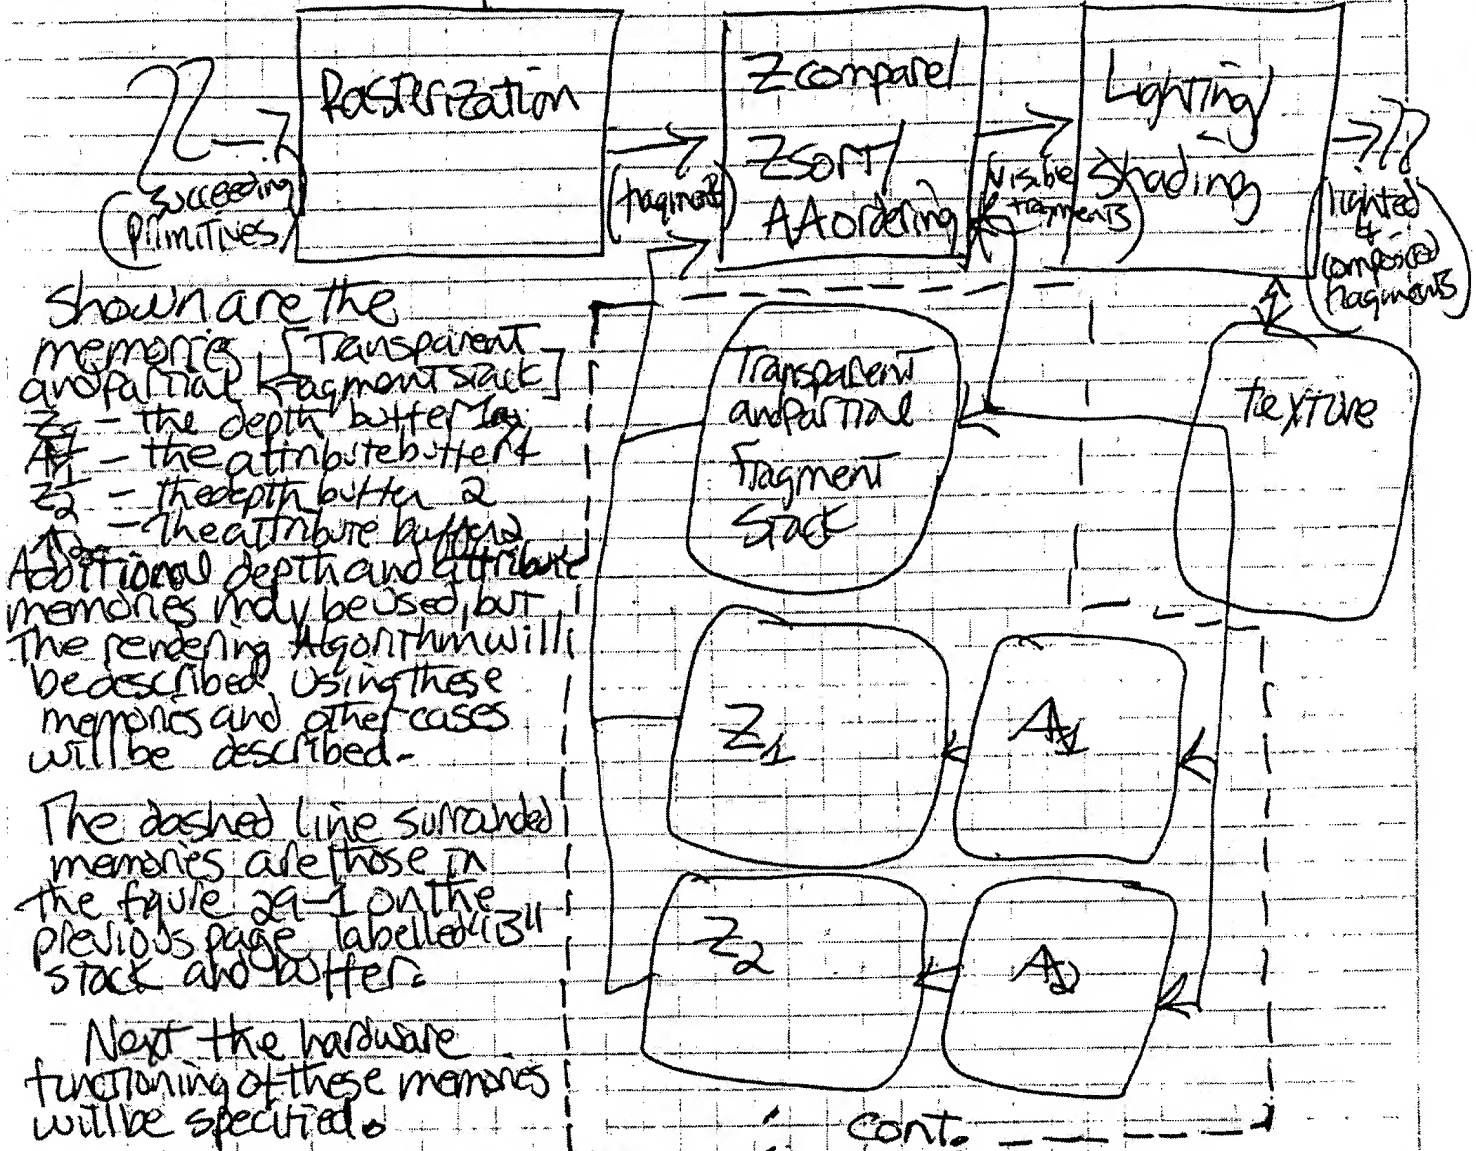 Rasterization
Z compare/
Z sort/
AA ordering
Lighting/
Shading
(succeeding
primitives)
(fragments)
(visible
fragments)
(lighted
&
composited
fragments)
Shown are the
memories, [Transparent
and partial fragment stack]
Z1 - the depth buffer 1
A1 - the attribute buffer 1
Z2 - the depth buffer 2
A2 - the attribute buffer 2
Additional depth and attribute
memories may be used, but
the rendering Algorithm will
be described using these
memories and other cases
will be described.
The dashed line surrounded
memories are those in
the figure 29-1 on the
previous page labelled "13"
stack and buffer.
Next the hardware
functioning of these memories
will be specified.
Transparent
and partial
fragment
stack
texture
Z1
A1
Z2
A2
cont.